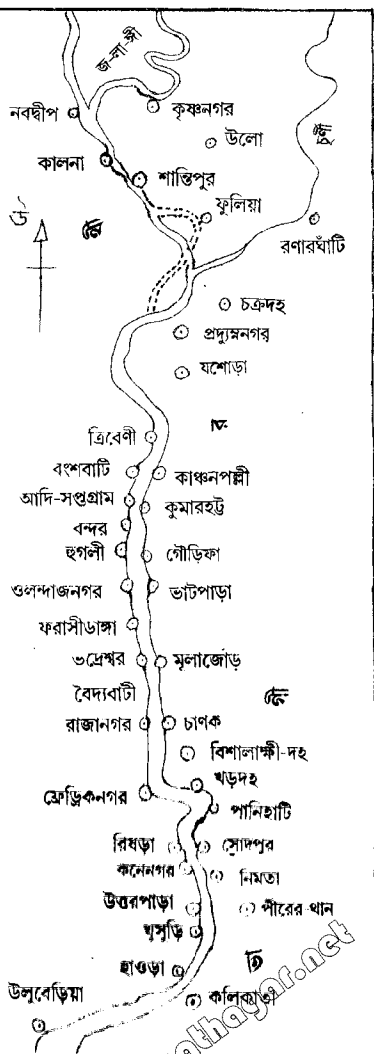 জ-লা-ঙ্গী
নবদ্বীপ
কৃষ্ণনগর
উলো
চূর্ণী
কালনা
শান্তিপুর
ফুলিয়া
উ
রণারঘাঁটি
চক্রদহ
প্রদ্যুম্ননগর
যশোড়া
ত্রিবেণী
বংশবাটি
কাঞ্চনপল্লী
আদি-সপ্তগ্রাম
কুমারহট্ট
বন্দর
হুগলী
গৌড়িফা
ওলন্দাজনগর
ভাটপাড়া
ফরাসীডাঙ্গা
ভদ্রেশ্বর
মূলাজোড়
বৈদ্যবাটী
রাজানগর
চাণক
বিশালাক্ষী-দহ
খড়দহ
ফ্রেড্রিকনগর
পানিহাটি
রিষড়া
সোদপুর
কনেনগর
নিমতা
উত্তরপাড়া
পীরের-থান
ঘুসুড়ি
হাওড়া
উলুবেড়িয়া
কলিকাতা
athagar.net